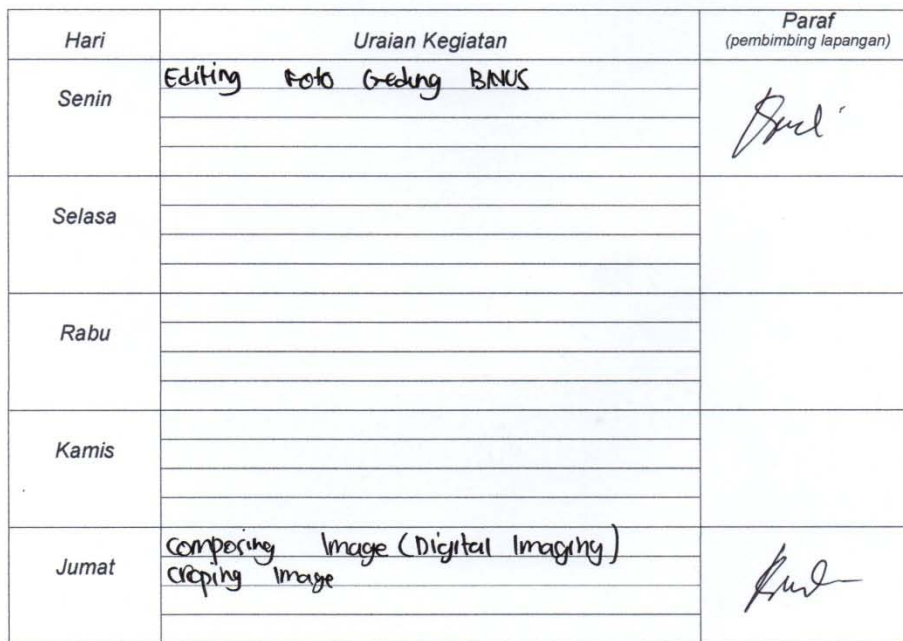 Hari Uraian Kegiatan Paraf
(pembimbing lapangan)
Senin Editing Foto Gedung BINUS
Selasa
Rabu
Kamis
Jumat Composing Image (Digital Imaging)
Croping Image